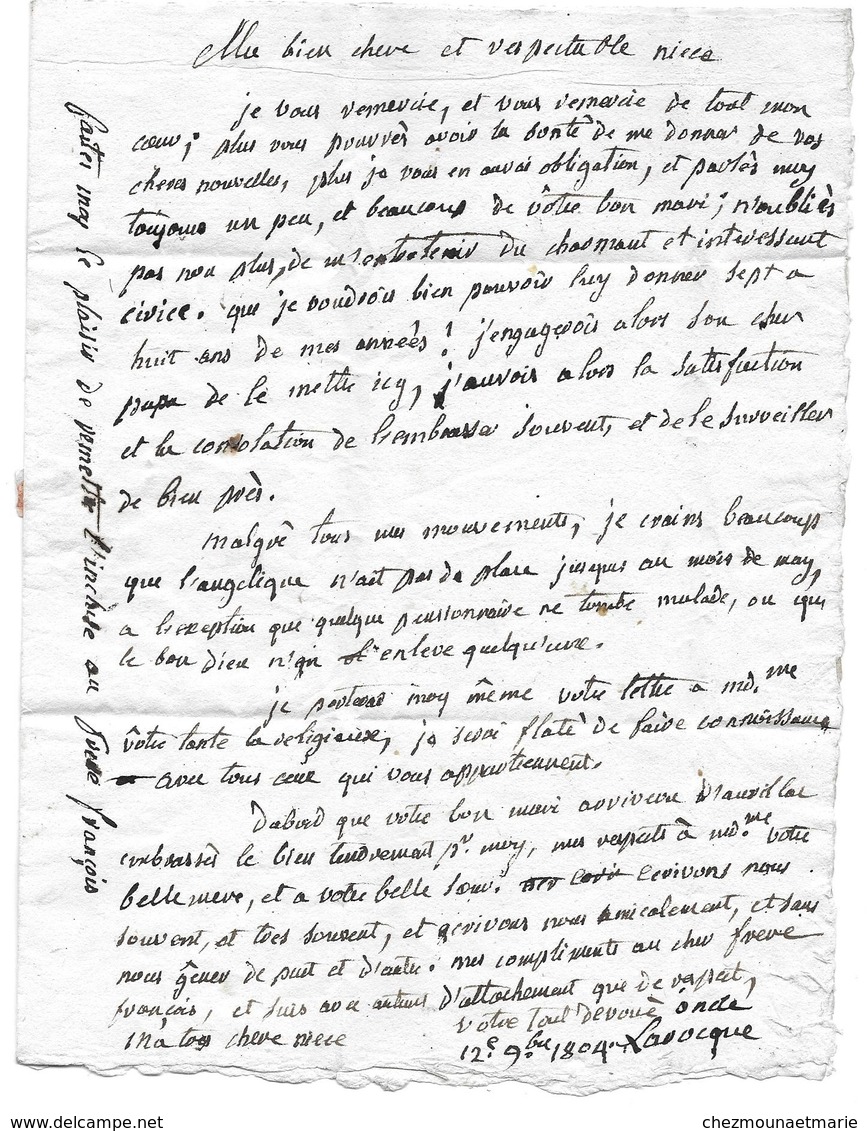 Ma bien chere et respectable niece
je vous remercie, et vous remercie de tout mon
cœur; plus vous pourrès avoir la bonté de me donner de vos
cheres nouvelles, plus je vous en aurai obligation, et parlès moy
toujours un peu, et beaucoup de vôtre bon mari; n'oubliès
pas non plus, de m'entretenir du charmant et interessant
civice. que je voudrois bien pouvoir luy donner sept a
huit ans de mes années! j'engagerois alors son cher
papa de le mettre icy, j'aurois alors la satisfaction
et la consolation de l'embrasser souvent, et de le surveiller
de bien près.
malgrè tous mes mouvements, je crains beaucoup
que l'angelique n'ait pas de place jusques au mois de may,
a l'exception que quelque pensionnaire ne tombe malade, ou que
le bon dieu n'en enleve quelqu'une.
je porterai moy même votre lettre a md.me
vôtre tante la religieuse, je serai flaté de faire connoissance
avec tous ceux qui vous appartiennent.
Dabord que votre bon mari arrivera d'auvillar
embrassès le bien tendrement pr. moy, mes respects à md.me votre
belle mere, et a votre belle sœur. ecrivons nous
souvent, et tres souvent, et ecrivons nous amicalement, et sans
nous gêner de part et d'autre. mes compliments au cher frere
françois, et suis avec autant d'attachement que de respect,
ma tres chere niece
votre tout devoué oncle
12.e 9.bre 1804. Larocque
faites moy le plaisir de remettre l'incluse au frere françois
chezmounaetmarie